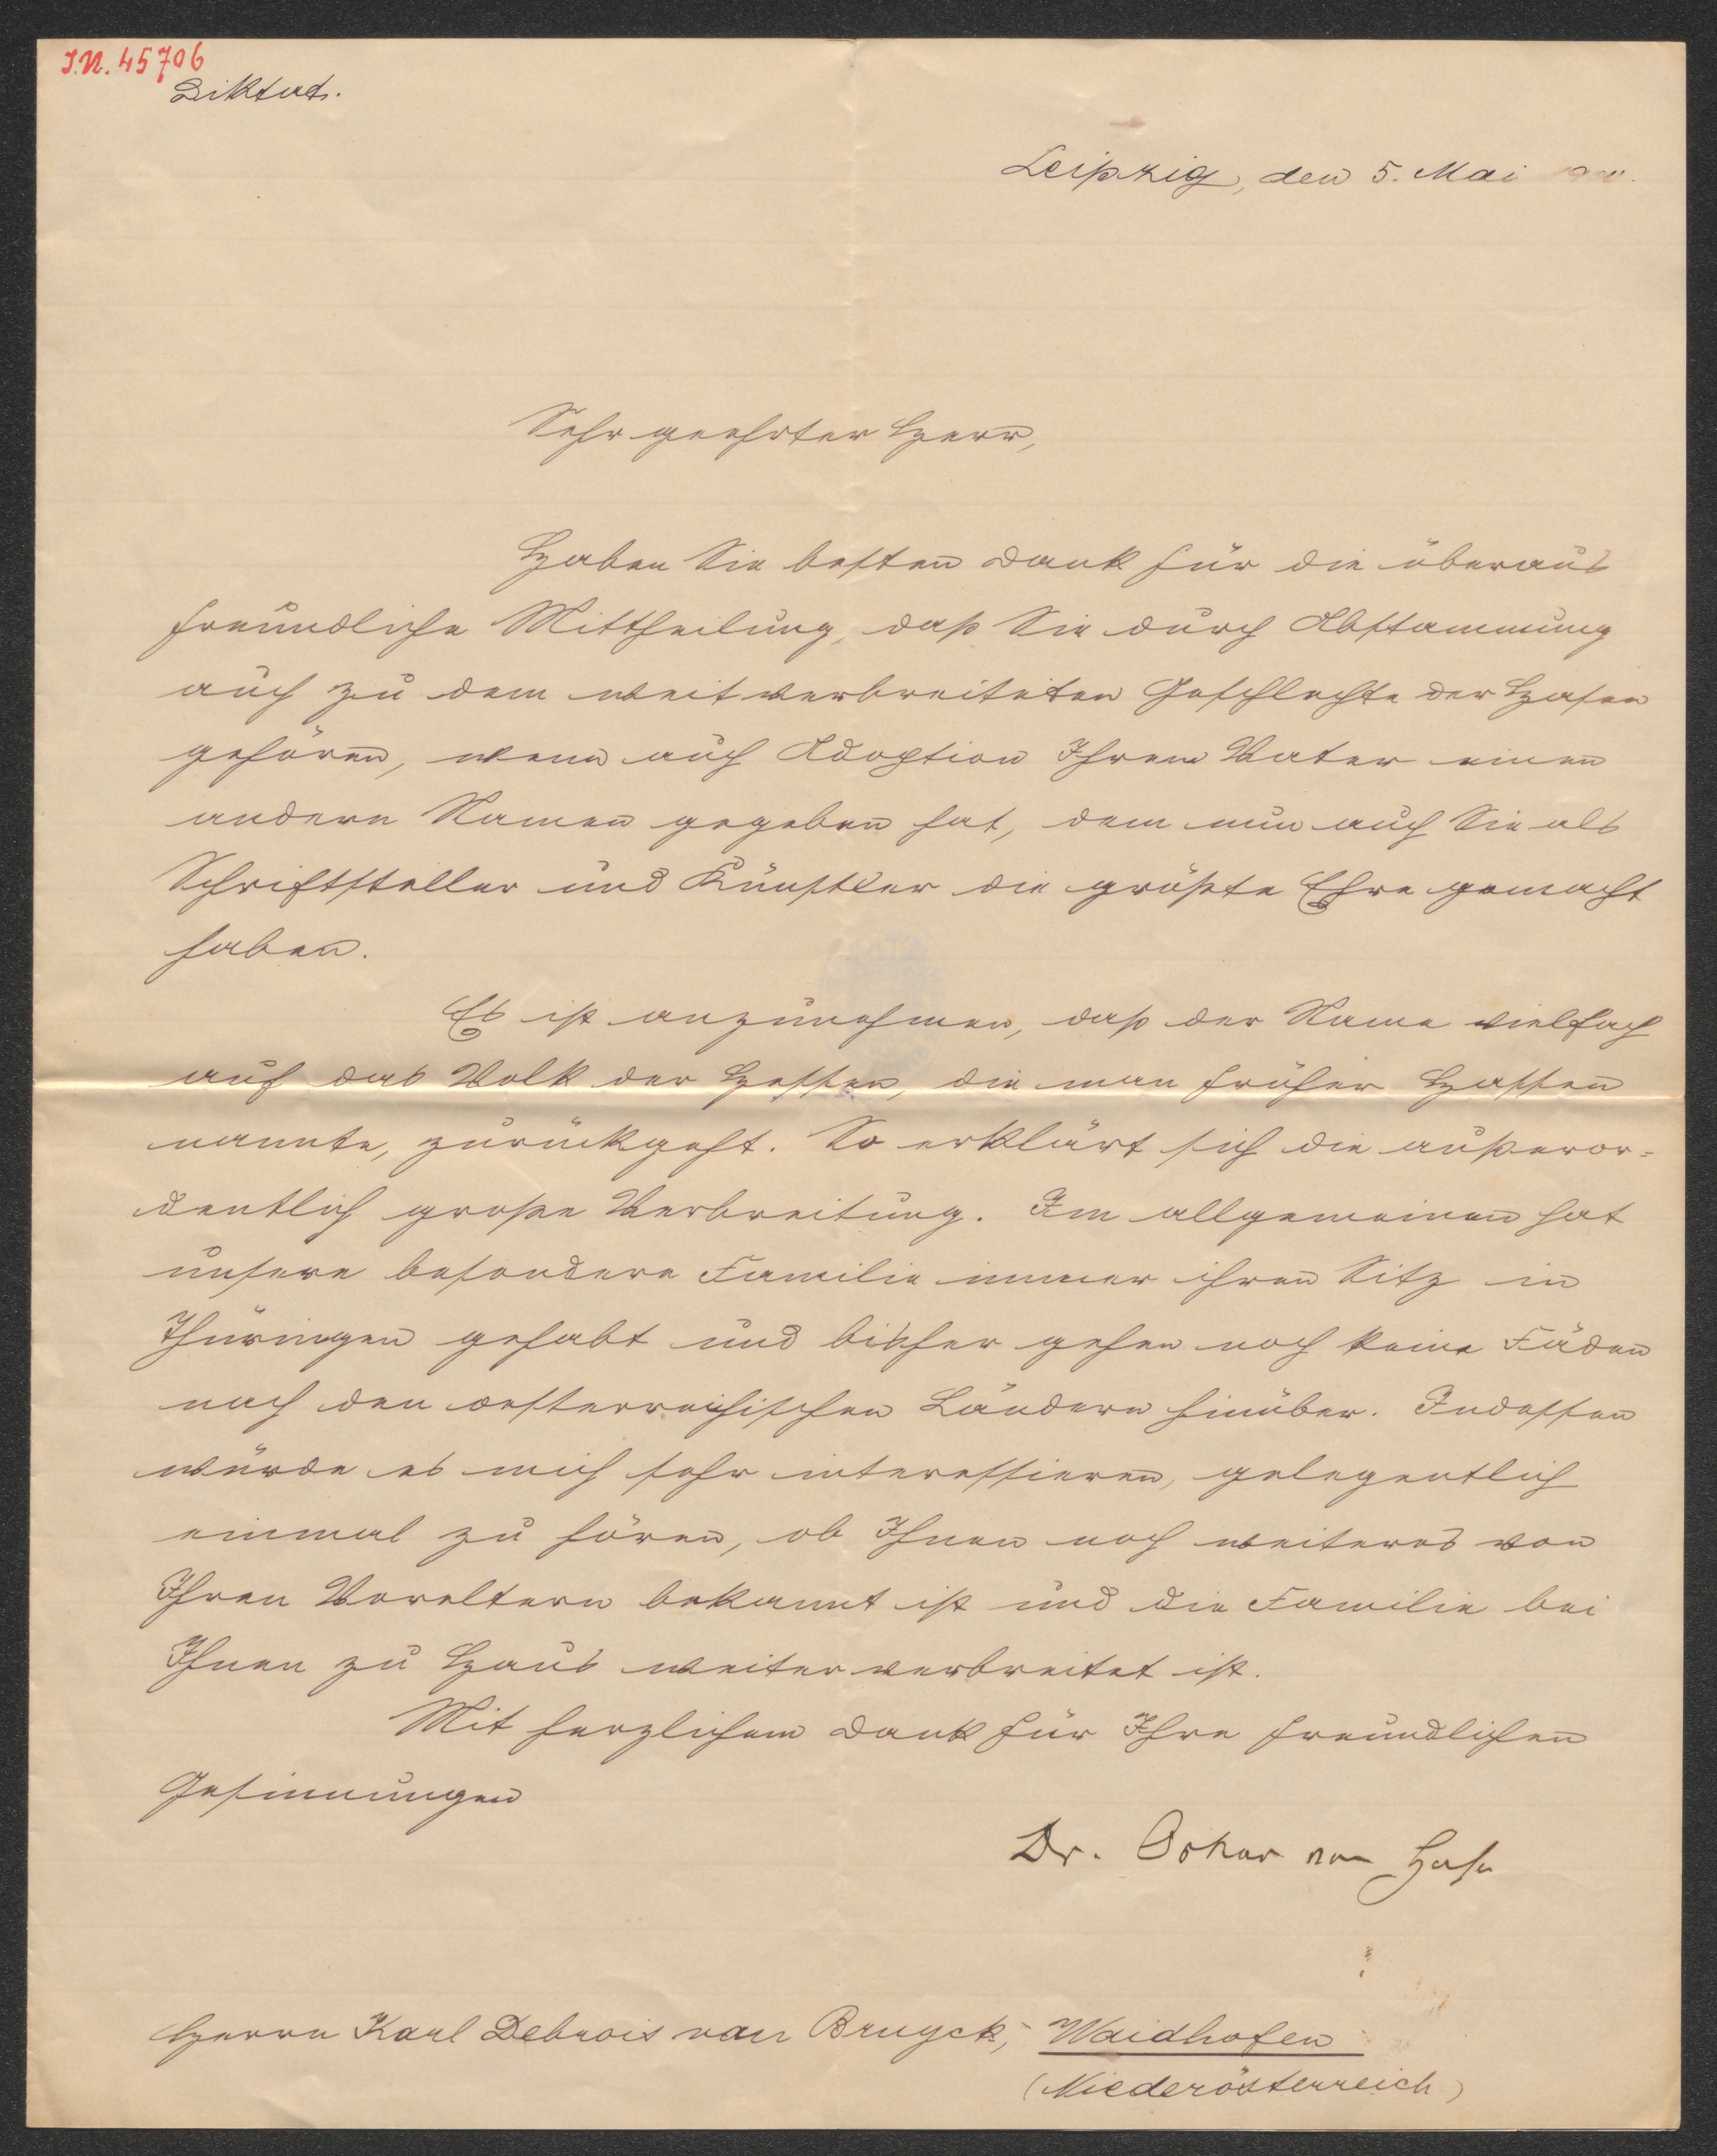 I.N. 45706
Diktat.
Leipzig, den 5. Mai
Sehr geehrter Herr,
Haben Sie besten Dank für die überaus
freundliche Mittheilung, daß Sie durch Abstammung
auch zu dem weitverbreiteten Geschlechte der Hasen
gehören, wenn auch Adoption Ihrem Vater einen
andern Namen gegeben hat, dem nun auch Sie als
Schriftsteller und Künstler die größte Ehre gemacht
haben.
Es ist anzunehmen, daß der Name vielfach
auf das Volk der Hessen, die man früher Hassen
nannte, zurückgeht. So erklärt sich die außeror-
dentlich große Verbreitung. Im allgemeinen hat
unsere besondere Familie immer ihren Sitz in
Thüringen gehabt und bisher gehen noch keine Fäden
nach den oesterreichischen Ländern hinüber. Indessen
würde es mich sehr interessieren, gelegentlich
einmal zu hören, ob Ihnen noch weiteres von
Ihren Voreltern bekannt ist und die Familie bei
Ihnen zu Haus weiter verbreitet ist.
Mit herzlichem Dank für Ihre freundlichen
Gesinnungen
Dr. Oskar von Hase
Herrn Karl Debrois van Bruyck, Waidhofen
(Niederösterreich)